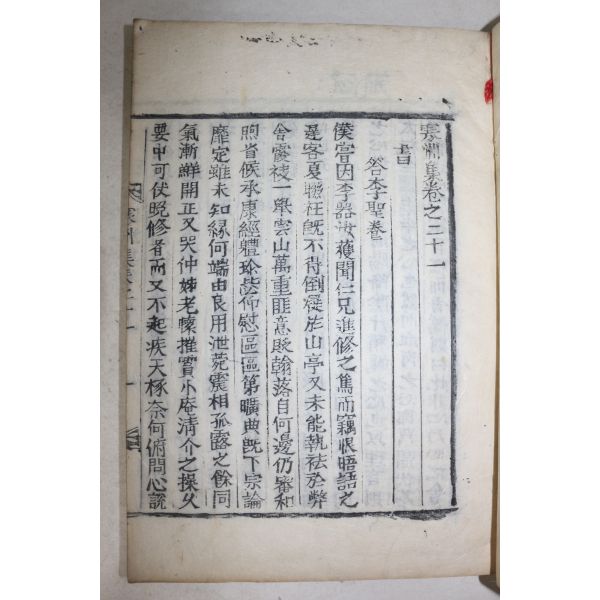 寒洲集卷之二十一
書
荅李聖
僕嘗因李器汝獲聞仁兄進修之篤而竊恨晤語之
遲客夏聯枉旣不得倒屣於山亭又未能執袪於弊
舍霞袂一擧雲山萬重匪意貺翰落自何邊仍審和
煦省候承康經體珍毖仰慰區區第曠典旣下宗論
靡定雖未知緣何端由良用泄菀震相孤露之餘同
氣漸鮮開正又哭仲姊老懷摧霣小庵淸介之操父
要中可伏晩修者而又不起疾天椓奈何俯問心說
寒洲集卷二十一
一